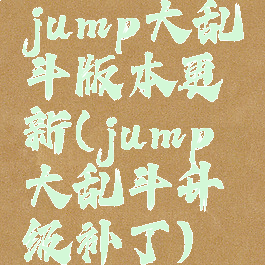 jump大乱
斗版本更
新(jump
大乱斗升
级补丁)